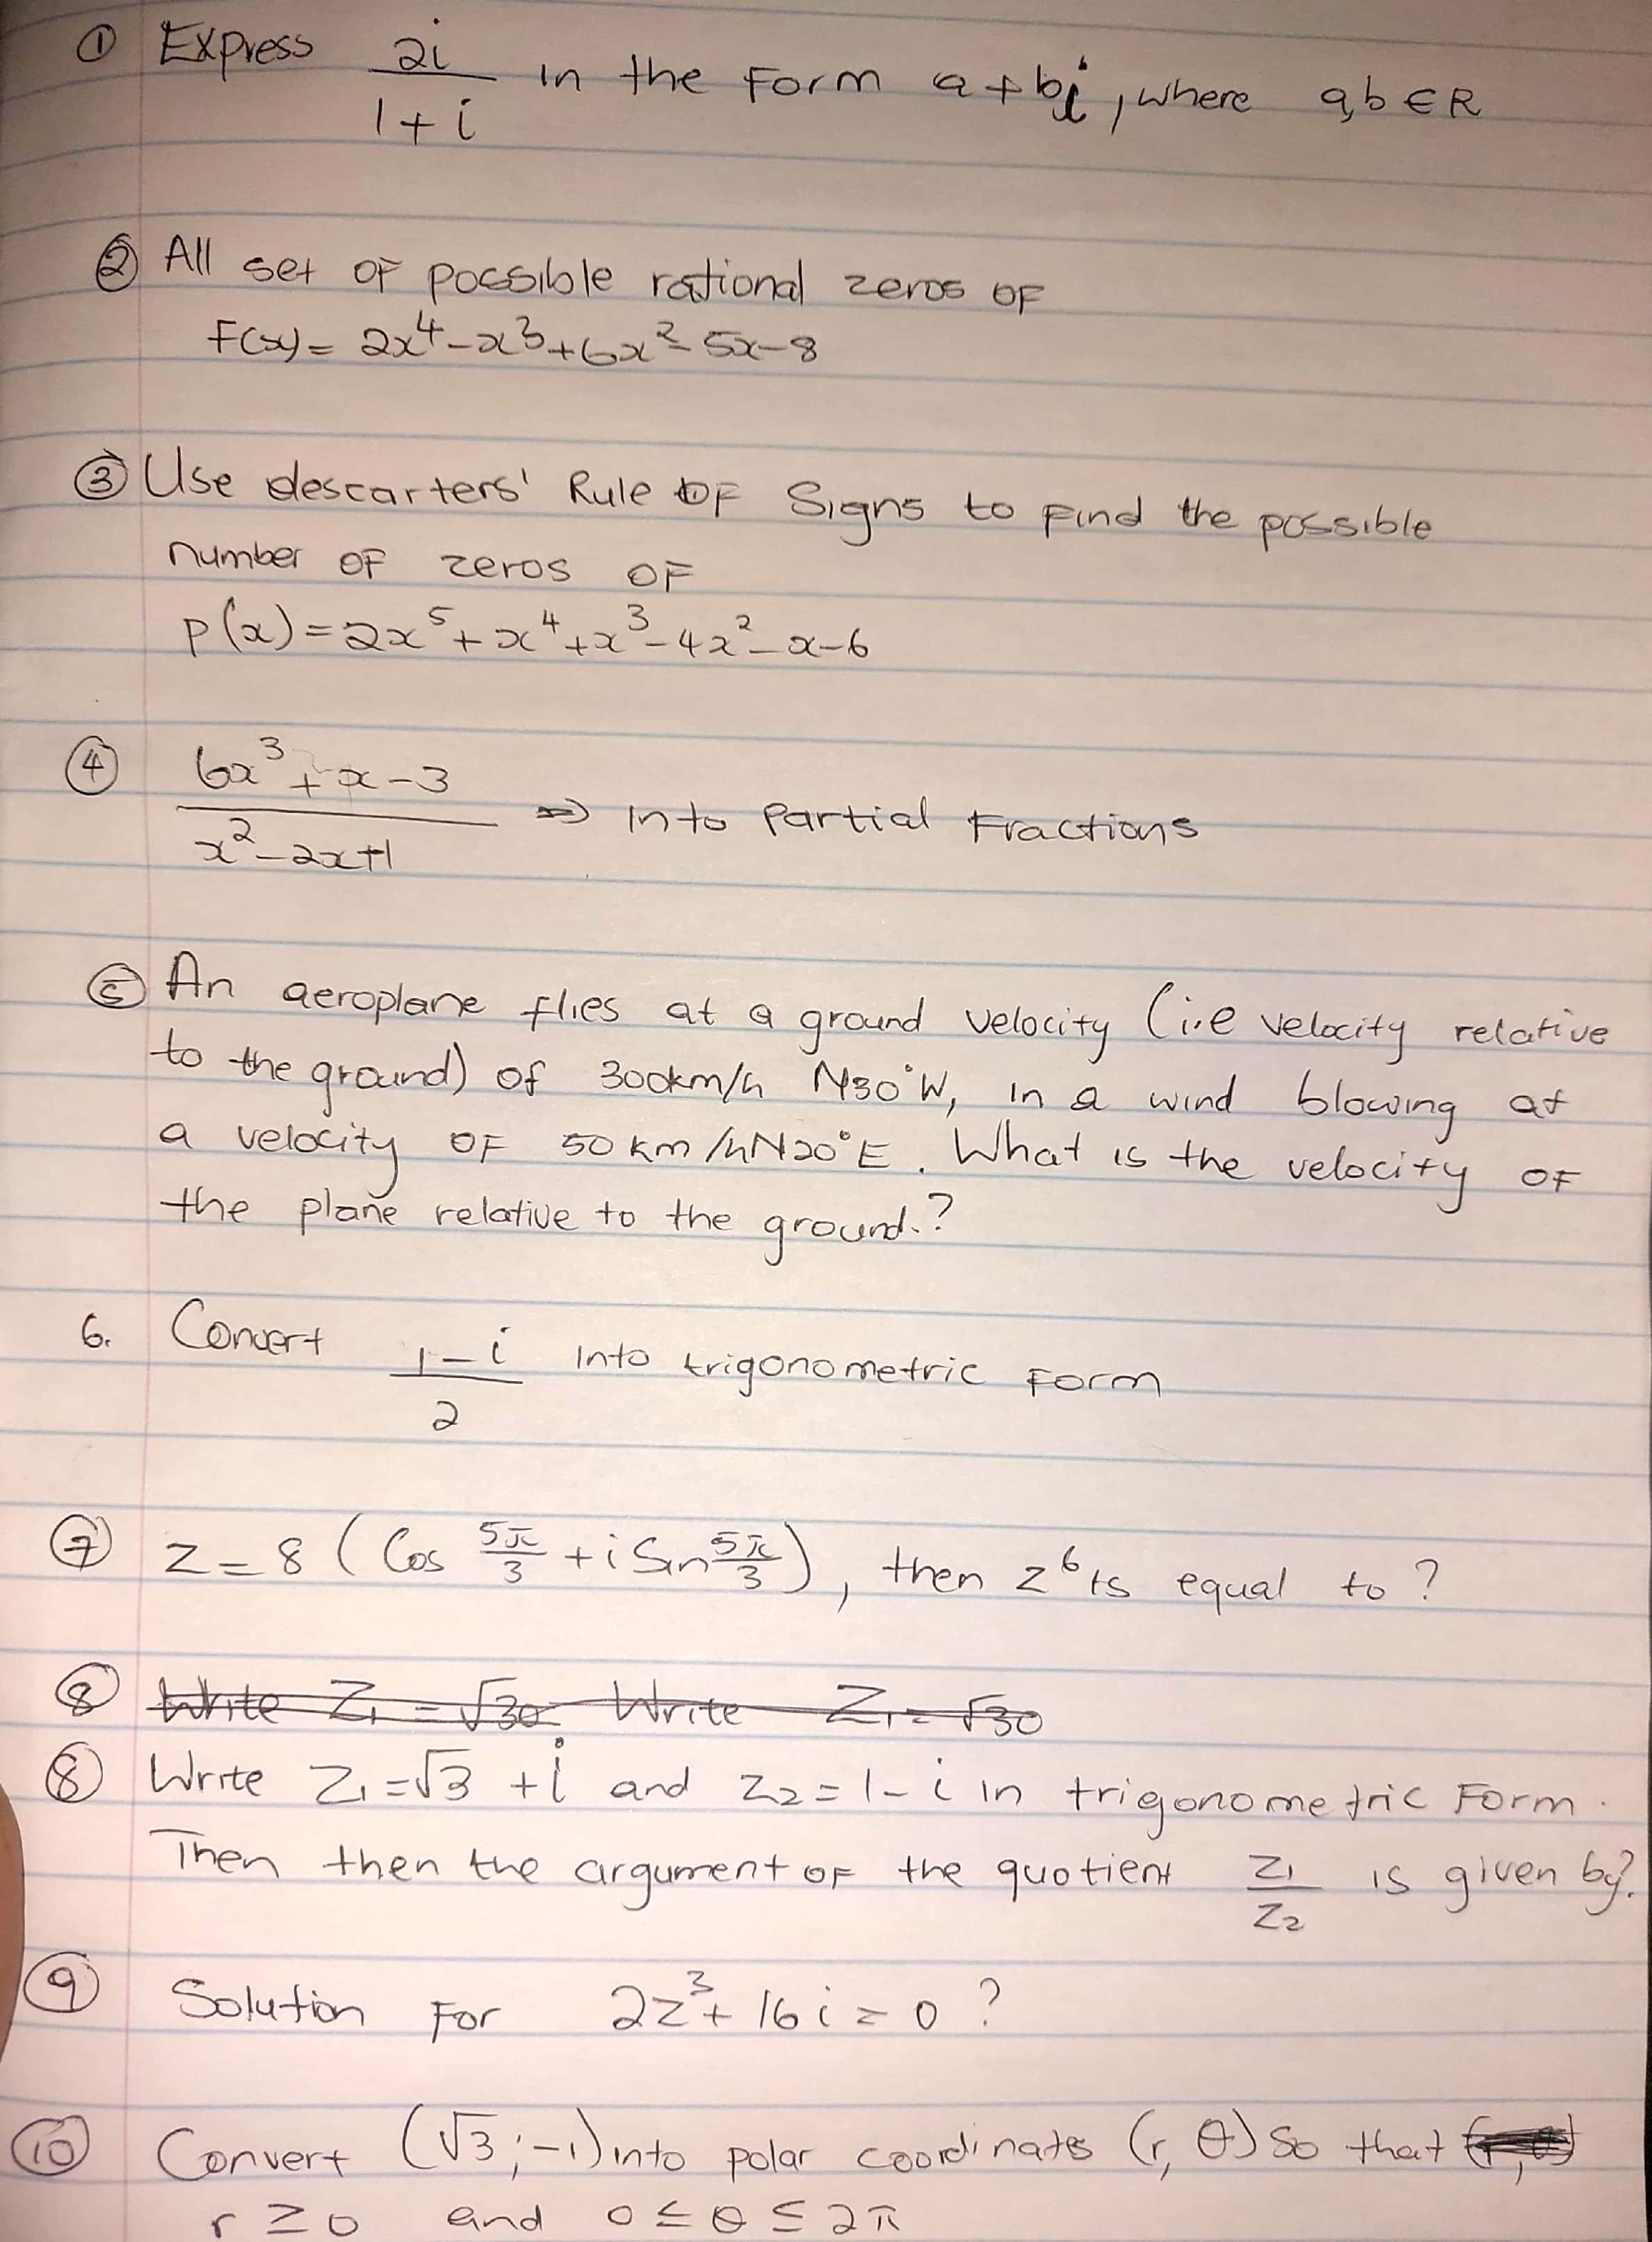 ① Express 2i/(1+i) in the form a+bi, where a,b ∈ R
② All set of possible rational zeros of
F(x) = 2x⁴-x³+6x²-5x-8
③ Use descarters' Rule of Signs to find the possible
number of zeros of
p(x) = 2x⁵+x⁴+x³-4x²-x-6
④ (6x³+x-3)/(x²-2x+1) ⇒ Into Partial Fractions
⑤ An aeroplane flies at a ground velocity (i.e velocity relative
to the ground) of 300km/h N30°W, in a wind blowing at
a velocity of 50 km/h N20°E. What is the velocity of
the plane relative to the ground.?
6. Convert (1-i)/2 into trigonometric form
⑦ Z = 8 (Cos 5π/3 + i Sin 5π/3), then z⁶ is equal to ?
⑧ Write Z₁ = √30 Write Z₁ = √30
⑧ Write Z₁ = √3 + i and Z₂ = 1-i in trigonometric form.
Then then the argument of the quotient Z₁/Z₂ is given by?
⑨ Solution For 2z³+16i = 0 ?
⑩ Convert (√3;-1) into polar coordinates (r, θ) so that
r ≥ 0 and 0 ≤ θ ≤ 2π